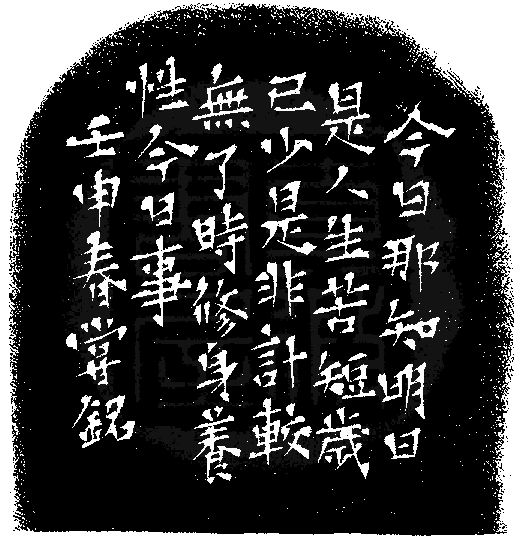 今日那知明日
是人生苦短歲
已少是非計較
無了時修身養
性今日事
壬申春銘